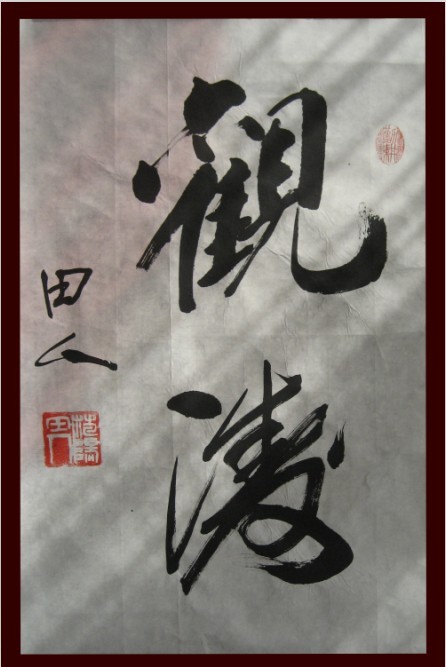 觀濤
田人